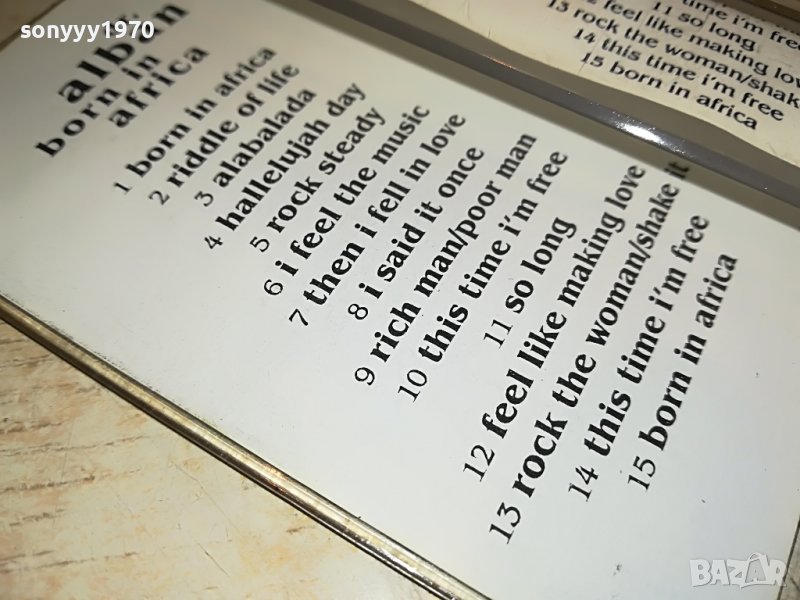 sonyyy1970
albän
born in
africa
1 born in africa
2 riddle of life
3 alabalada
4 hallelujah day
5 rock steady
6 i feel the music
7 then i fell in love
8 i said it once
9 rich man/poor man
10 this time i'm free
11 so long
12 feel like making love
13 rock the woman/shake it
14 this time i'm free
15 born in africa
time i'm free
11 so long
12 feel like making love
13 rock the woman/shake
14 this time i'm free
15 born in africa
BAZAR